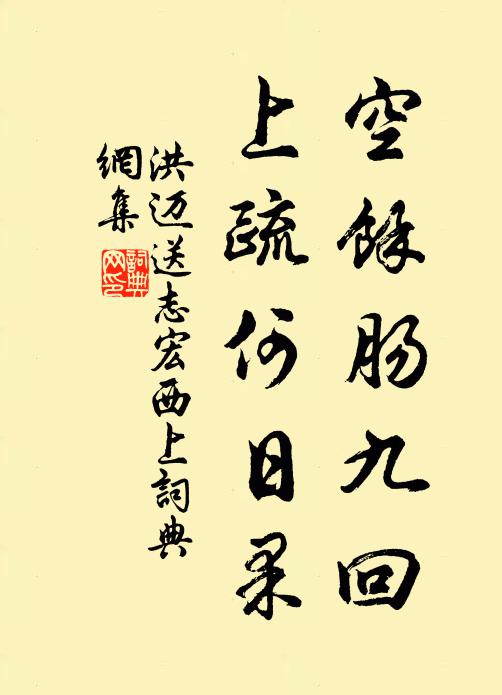 空餘肠九回
上疏何日果
洪迈送志宏西上詞典
網集
詞典
网印